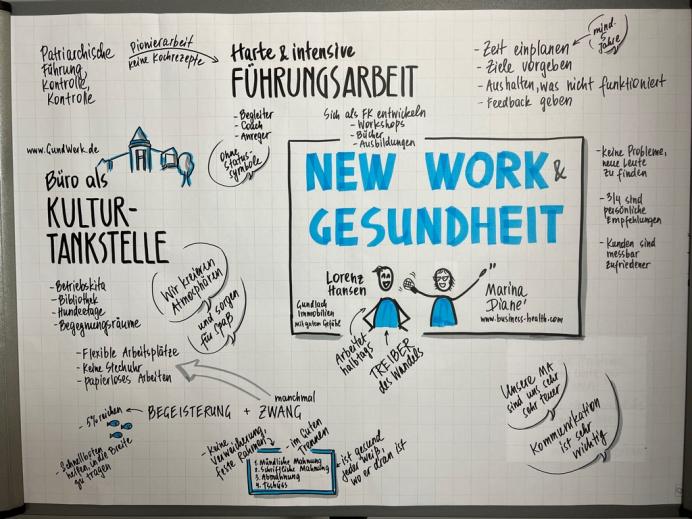 Patriarchische
Führung,
Kontrolle,
Kontrolle
Pionierarbeit
keine Kochrezepte
Harte & intensive
FÜHRUNGSARBEIT
- Begleiter
- Coach
- Anreger
Ohne
Status-
symbole
Sich als FK entwickeln
- Workshops
- Bücher
- Ausbildungen
- Zeit einplanen
mind.
5
Jahre
- Ziele vorgeben
- Aushalten, was nicht funktioniert
- Feedback geben
www.GundWerk.de
Büro als
KULTUR-
TANKSTELLE
- Betriebskita
- Bibliothek
- Hundeetage
- Begegnungsräume
Wir kreieren
Atmosphären
und sorgen
für Spaß
- Flexible Arbeitsplätze
- Keine Stechuhr
- papierloses Arbeiten
NEW WORK &
GESUNDHEIT
Lorenz
Hansen
Gundlach
Immobilien
mit gutem Gefühl
Marina
Diané
www.business-health.com
Arbeitet
halbtags
TREIBER
des Wandels
- Keine Probleme,
neue Leute
zu finden
- 3/4 sind
persönliche
Empfehlungen
- Kunden sind
messbar
zufriedener
manchmal
BEGEISTERUNG + ZWANG
- 5% reichen
- Schnellboote
helfen, in die Breite
zu tragen
- Keine
Verweicherung,
feste Rahmen
- im Guten
Trennen
1. Mündliche Mahnung
2. Schriftliche Mahnung
3. Abmahnung
4. Tschüss
- ist gesund
jeder weiß,
wo er dran ist
Unsere MA
sind uns sehr
sehr teuer
Kommunikation
ist sehr
wichtig